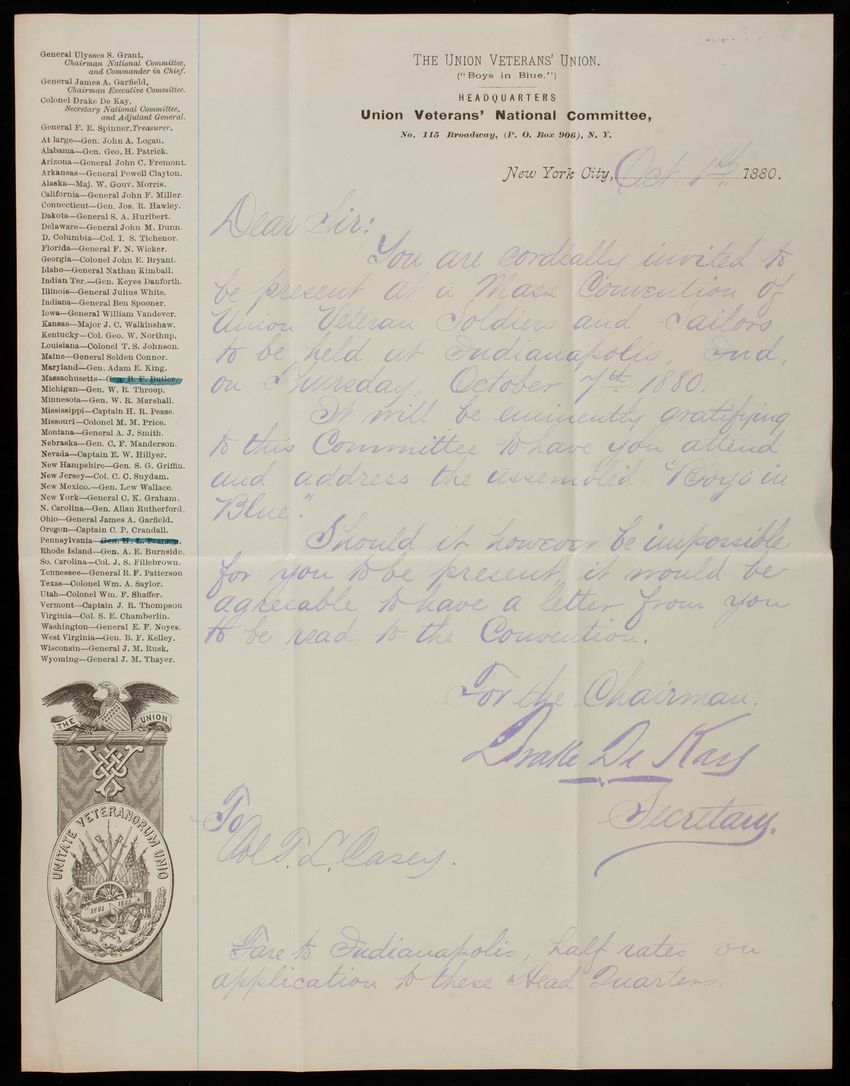 General Ulysses S. Grant,
Chairman National Committee,
and Commander in Chief.
General James A. Garfield,
Chairman Executive Committee.
Colonel Drake De Kay,
Secretary National Committee,
and Adjutant General.
General F. E. Spinner, Treasurer.
At large—Gen. John A. Logan.
Alabama—Gen. Geo. H. Patrick.
Arizona—General John C. Fremont.
Arkansas—General Powell Clayton.
Alaska—Maj. W. Gouv. Morris.
California—General John F. Miller.
Connecticut—Gen. Jos. R. Hawley.
Dakota—General S. A. Hurlbert.
Delaware—General John M. Dunn.
D. Columbia—Col. I. S. Tichenor.
Florida—General F. N. Wicker.
Georgia—Colonel John E. Bryant.
Idaho—General Nathan Kimball.
Indian Ter.—Gen. Keyes Danforth.
Illinois—General Julius White.
Indiana—General Ben Spooner.
Iowa—General William Vandever.
Kansas—Major J. C. Walkinshaw.
Kentucky—Col. Geo. W. Northup.
Louisiana—Colonel T. S. Johnson.
Maine—General Selden Connor.
Maryland—Gen. Adam E. King.
Massachusetts—Gen. B. F. Butler.
Michigan—Gen. W. R. Throop.
Minnesota—Gen. W. R. Marshall.
Mississippi—Captain H. R. Pease.
Missouri—Colonel M. M. Price.
Montana—General A. J. Smith.
Nebraska—Gen. C. F. Manderson.
Nevada—Captain E. W. Hillyer.
New Hampshire—Gen. S. G. Griffin.
New Jersey—Col. C. C. Suydam.
New Mexico.—Gen. Lew Wallace.
New York—General C. K. Graham.
N. Carolina—Gen. Allan Rutherford.
Ohio—General James A. Garfield.
Oregon—Captain C. P. Crandall.
Pennsylvania—Gen. H. L. Pearson.
Rhode Island—Gen. A. E. Burnside.
So. Carolina—Col. J. S. Fillebrown.
Tennessee—General R. F. Patterson
Texas—Colonel Wm. A. Saylor.
Utah—Colonel Wm. F. Shaffer.
Vermont—Captain J. R. Thompson
Virginia—Col. S. E. Chamberlin.
Washington—General E. F. Noyes.
West Virginia—Gen. B. F. Kelley.
Wisconsin—General J. M. Rusk.
Wyoming—General J. M. Thayer.
THE UNION
UNITATE VETERANORUM UNIO
1861 1865
The Union Veterans' Union.
("Boys in Blue.")
HEADQUARTERS
Union Veterans' National Committee,
No. 115 Broadway, (P. O. Box 906), N. Y.
New York City, Oct 1st 1880.
Dear Sir:
You are cordially invited to
be present at a Mass Convention of
Union Veteran Soldiers and Sailors
to be held at Indianapolis, Ind,
on Thursday, October 7th 1880.
It will be eminently gratifying
to this Committee to have you attend
and address the assembled "Boys in
Blue".
Should it however be impossible
for you to be present, it would be
agreeable to have a letter from you
to be read to the Convention.
For the Chairman.
Drake De Kay
Secretary.
To
Col T. L. Casey.
Fare to Indianapolis, half rates on
application to these Head Quarters.